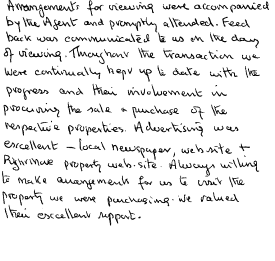 Arrangements for viewing were accompanied
by the Agent and promptly attended. Feed
back was communicated to us on the day
of viewing. Throughout the transaction we
were continually kept up to date with the
progress and their involvement in
procuring the sale + purchase of the
respective properties. Advertising was
excellent - local newspaper, web site +
Rightmove property web-site. Always willing
to make arrangements for us to visit the
property we were purchasing. We valued
their excellent support.